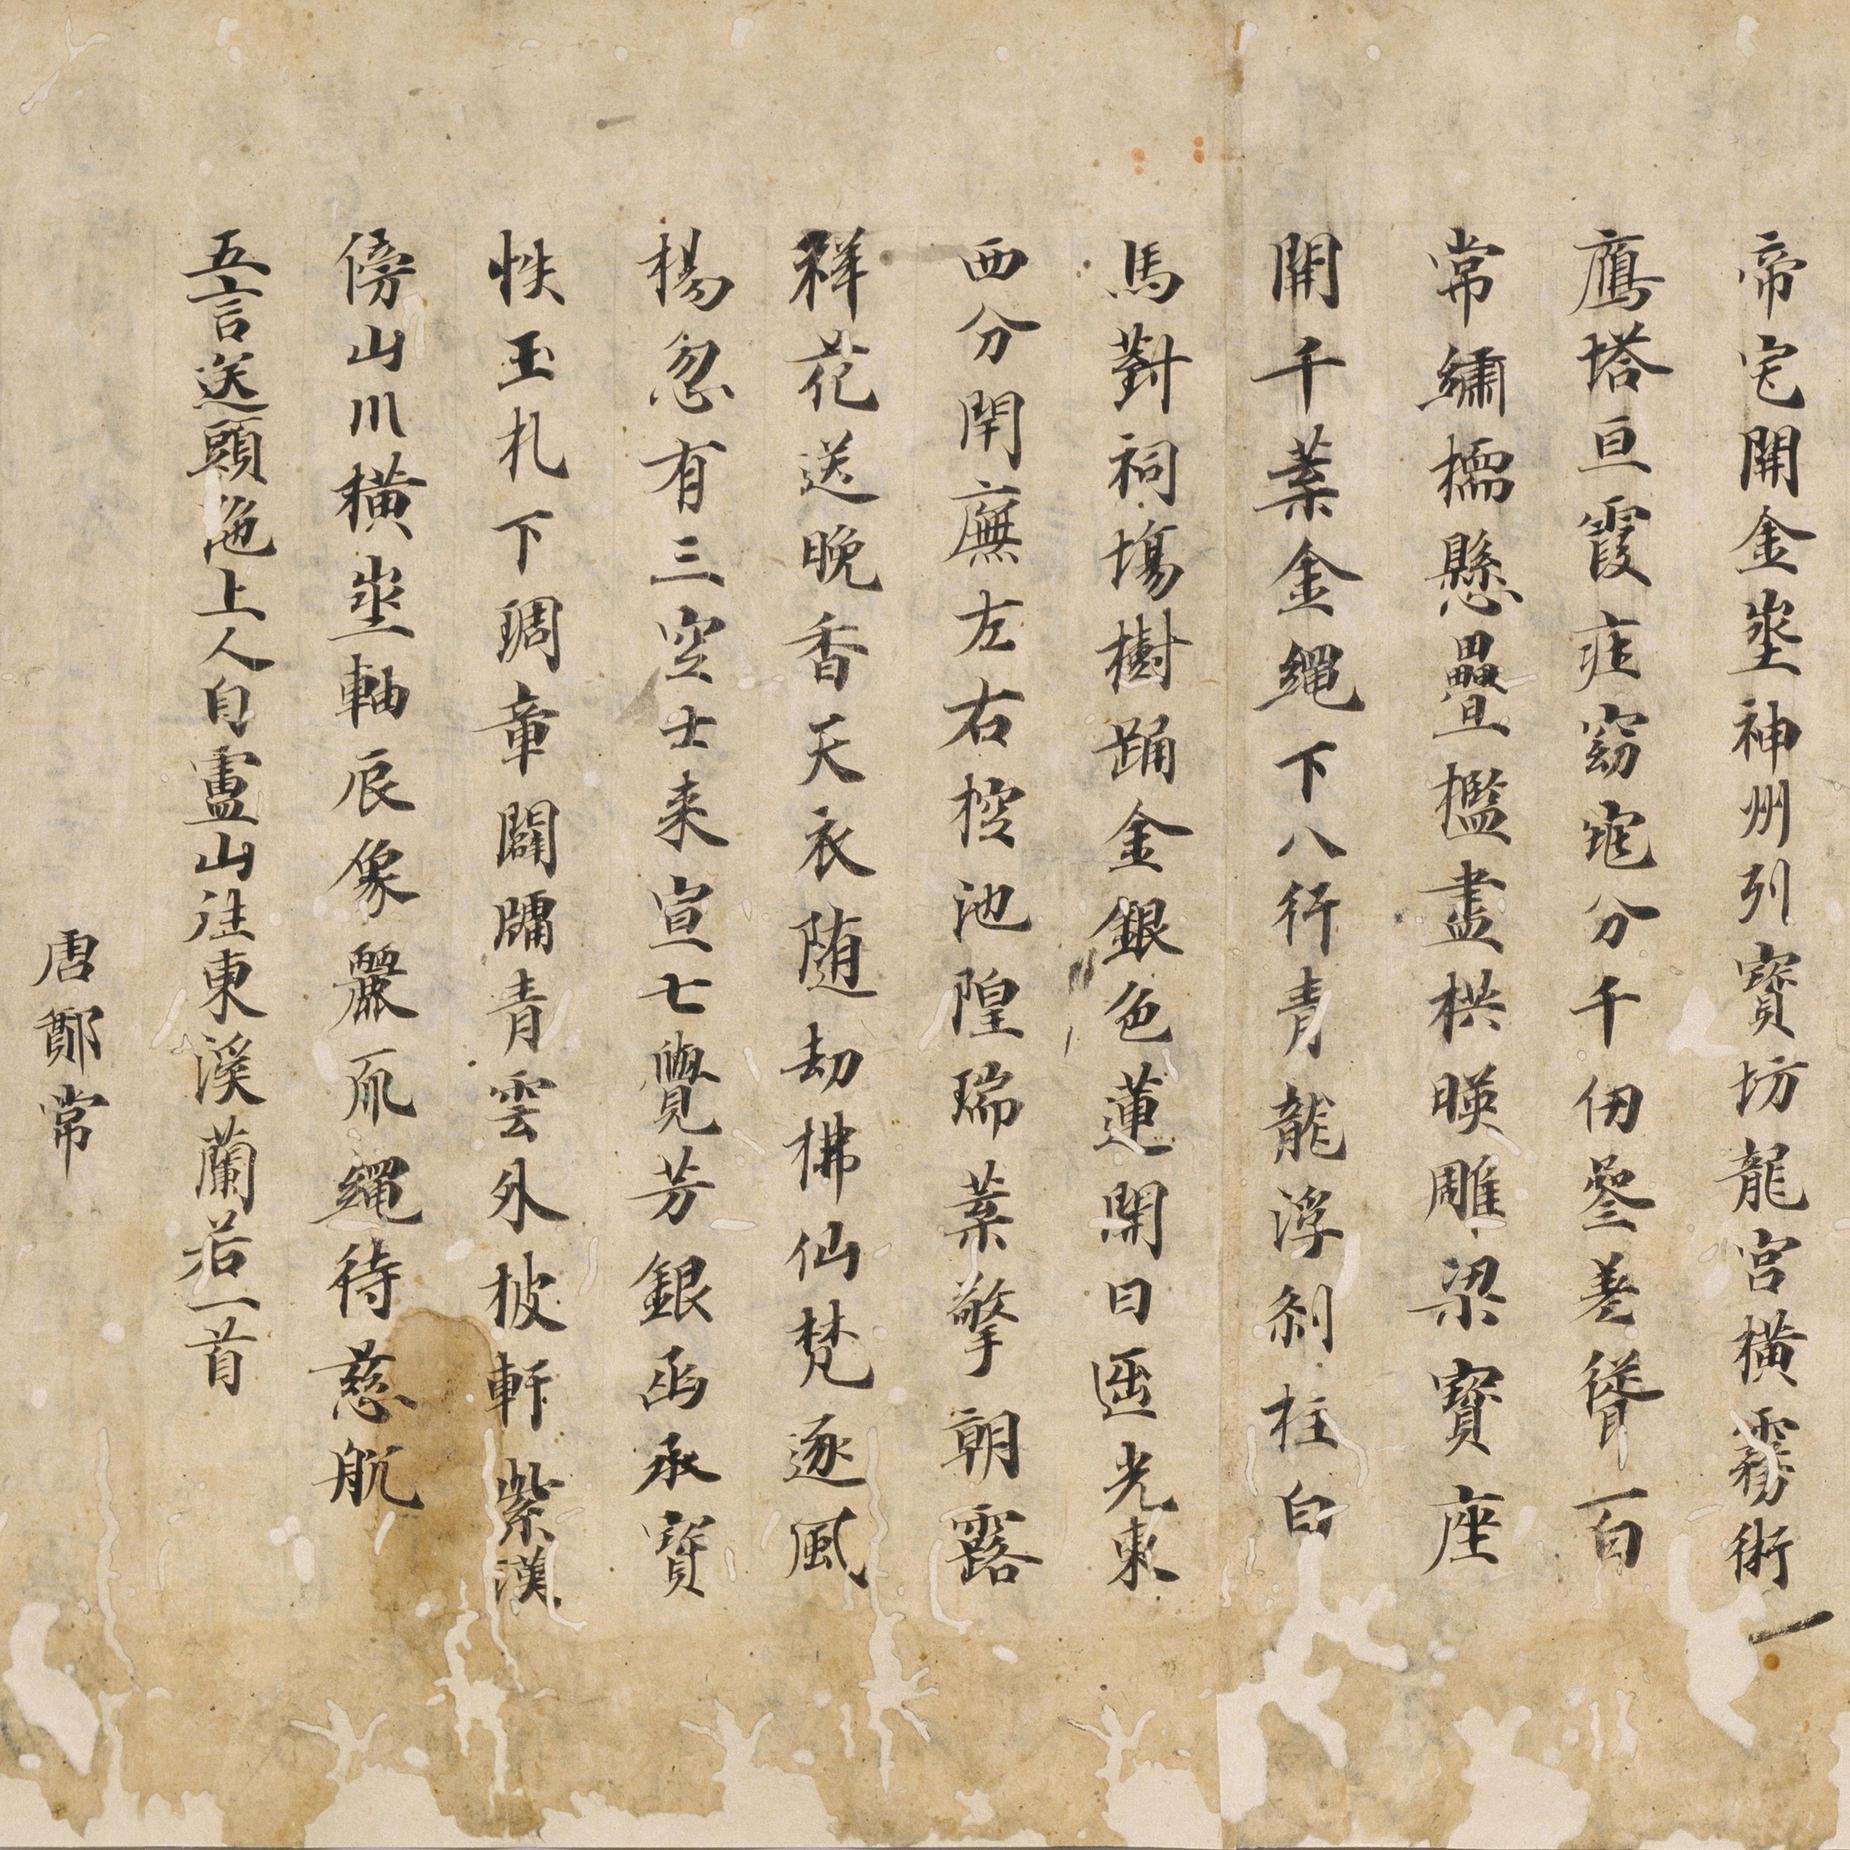 帝宅開金埊神州列寶坊龍宮横霧術
鷹塔亘霞疘窈窕分千仞叄差聳一百
常繡檽懸疊檻畫栱暎雕梁寶座
開千葉金繩下八行青龍浮刹柱白
馬對祠塲樹踊金銀色蓮開日匝光東
西分閈廡左右控池隍瑞葉擎朝露
祥花送晚香天衣随劫拂仙梵逐風
楊忽有三空士来宣七覺芳銀函承寶
帙玉札下琱章闢牖青雲外披軒紫漢
傍山川横埊軸辰象麗㡯繩待慈航
五言送頭陁上人自盧山往東溪蘭若一首
唐鄭常